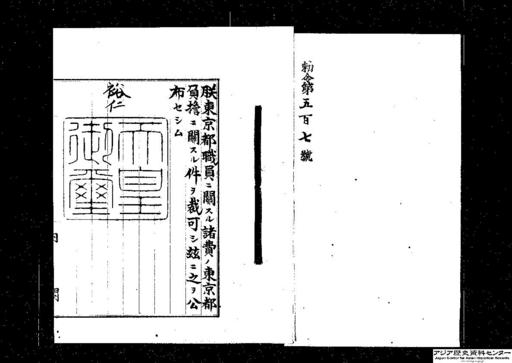 勅令第五百七號
朕東京都職員ニ關スル諸費ノ東京都
負擔ニ關スル件ヲ裁可シ玆ニ之ヲ公
布セシム
裕仁
天皇
御璽
内
閣
アジア歴史資料センター
Japan Center for Asian Historical Records